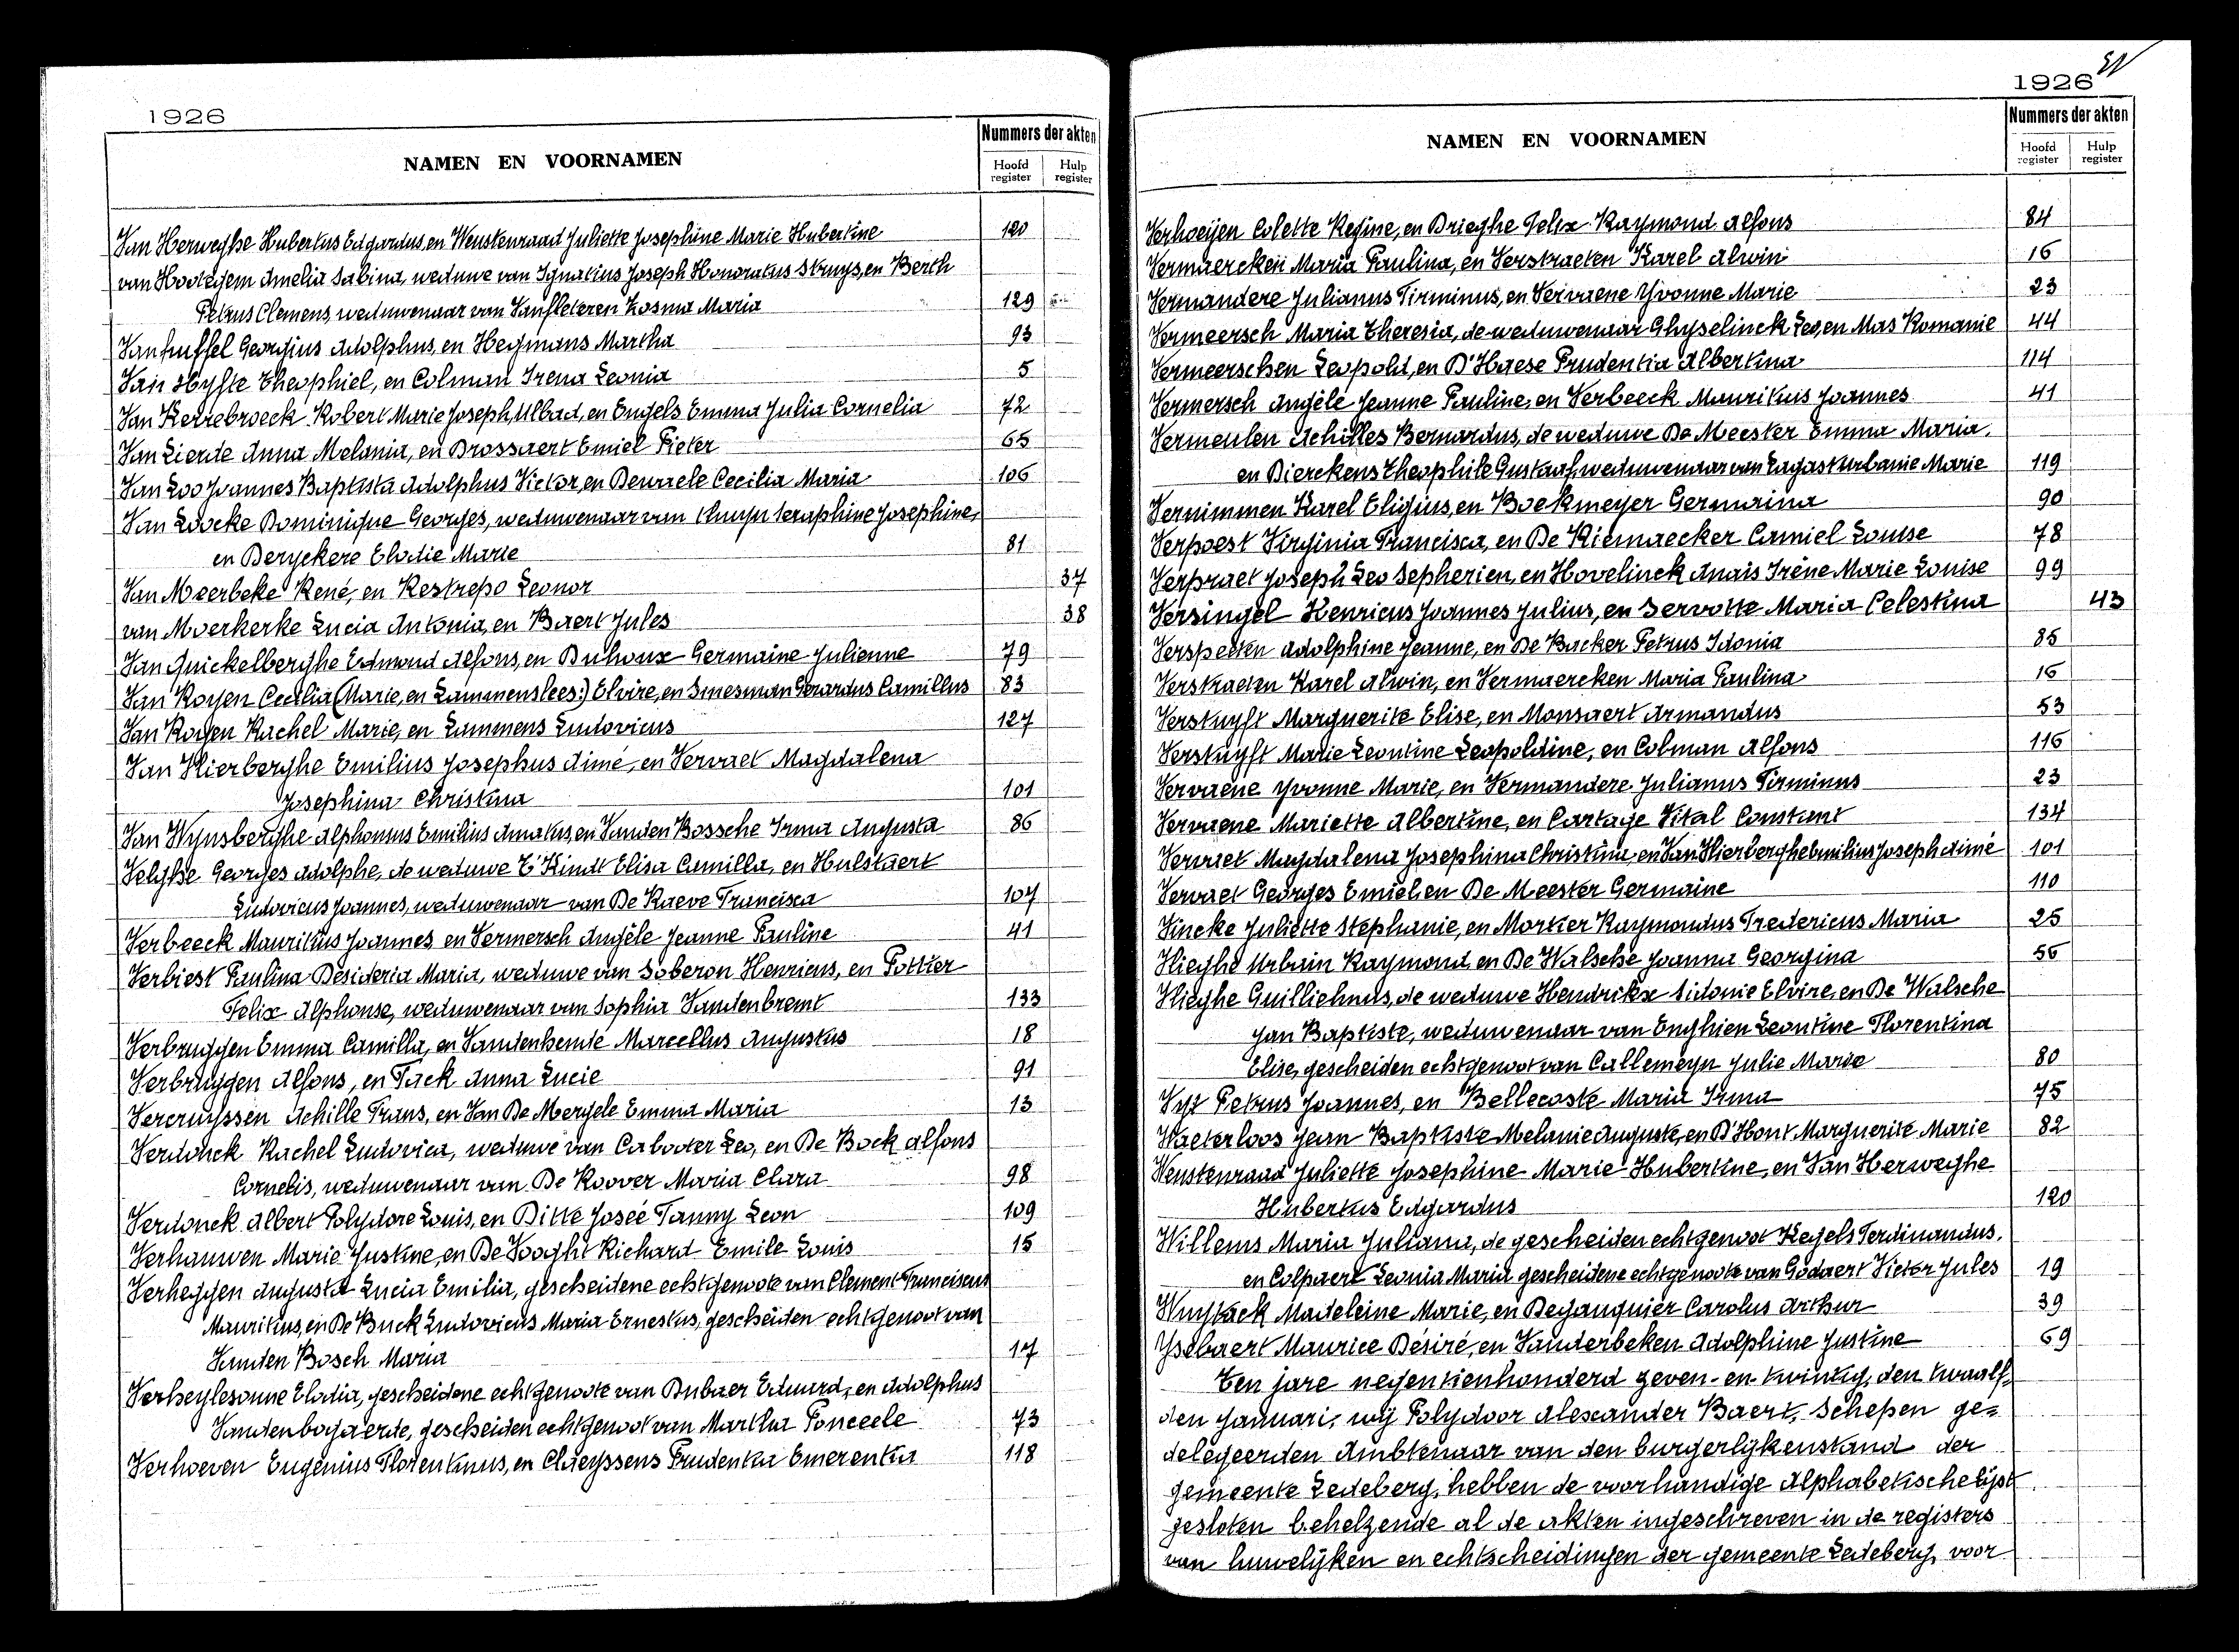 1926
NAMEN EN VOORNAMEN
Nummers der akten
Hoofd register
Hulp register
Van Herweghe Hubertus Edgardus, en Wenstenraad Juliette Josephine Marie Hubertine 120
van Hootegem Amelia Sabina, weduwe van Ignatius Joseph Honoratus Struys, en Berth
Petrus Clemens, weduwenaar van Vanfleteren Kosma Maria 129
Vanhuffel Georgius Adolphus, en Heymans Martha 93
Van Hyfte Theophiel, en Colman Irena Leonia 5
Van Kerrebroeck Robert Marie Joseph Ulbad, en Engels Emma Julia Cornelia 72
Van Lierde Anna Melania, en Brossaert Emiel Pieter 65
Van Loo Joannes Baptista Adolphus Victor, en Dewaele Cecilia Maria 106
Van Loocke Dominique Georges, weduwenaar van Seraphine Josephine,
en Deryckere Elodie Marie 81
Van Meerbeke René, en Restrepo Leonor 37
van Moerkerke Lucia Antonia, en Baert Jules 38
Van Quickelberghe Edmond Alfons, en Buhoux Germaine Julienne 79
Van Royen Cecilia (Marie, en Lammens lees:) Elvire, en Smesman Gerardus Camillus 83
Van Royen Rachel Marie, en Lammens Ludovicus 127
Van Hierberghe Emilius Josephus Aimé, en Vervaet Magdalena
Josephina Christina 101
Van Wynsberghe Alphonsus Emilius Amatus, en Vanden Bossche Irma Augusta 86
Velghe Georges Adolphe, de weduwe T'Kindt Elisa Camilla, en Hulstaert
Ludovicus Joannes, weduwenaar van De Raeve Francisca 107
Verbeeck Mauritius Joannes, en Vermersch Angèle Jeanne Pauline 41
Verbiest Paulina Desideria Maria, weduwe van Soberon Henricus, en Pottier
Felix Alphonse, weduwenaar van Sophia Vandenbremt 133
Verbruggen Emma Camilla, en Vandenhende Marcellus Augustus 18
Verbruggen Alfons, en Tack Anna Lucie 91
Vercruyssen Achille Frans, en Van De Mergele Emma Maria 13
Verdonck Rachel Ludovica, weduwe van Cabooter Leo, en De Bock Alfons
Cornelis, weduwenaar van De Roover Maria Clara 98
Verdonck Albert Polydore Louis, en Ditte Josée Fanny Leon 109
Verhauwen Marie Justine, en De Vooght Richard Emile Louis 15
Verheggen Augusta Lucia Emilia, gescheidene echtgenoote van Clement Franciscus
Mauritius, en De Buck Ludovicus Maria Ernestus, gescheiden echtgenoot van
Vanden Bosch Maria 17
Verheylesonne Elodia, gescheidene echtgenoote van Dubaer Eduard, en Adolphus
Vandenbogaerde, gescheiden echtgenoot van Martha Ponceele 73
Verhoeven Eugenius Florentinus, en Claeyssens Prudentia Emerentia 118
1926
NAMEN EN VOORNAMEN
Nummers der akten
Hoofd register
Hulp register
Verhoeijen Colette Regine, en Brieghe Felix Raymond Alfons 84
Vermaercken Maria Paulina, en Verstraeten Karel Alwin 16
Vermandere Julianus Firminus, en Vervaene Yvonne Marie 23
Vermeersch Maria Theresia, de weduwenaar Ghyselinck Leo, en Mas Romanie 44
Vermeerschen Leopold, en D'Haese Prudentia Albertina 114
Vermersch Angèle Jeanne Pauline, en Verbeeck Mauritius Joannes 41
Vermeulen Achilles Bernardus, de weduwe De Meester Emma Maria,
en Bierekens Theophile Gustaaf, weduwenaar van Lagast Urbanie Marie 119
Vernimmen Karel Eligius, en Boekmeyer Germaina 90
Verpoest Virginia Francisca, en De Riemaecker Camiel Louise 78
Verpraet Joseph Leo Sepherien, en Hovelinck Anaïs Irène Marie Louise 99
Versingel Henricus Joannes Julius, en Servotte Maria Celestina 43
Verspecten Adolphine Jeanne, en De Backer Petrus Idonia 85
Verstraeten Karel Alwin, en Vermaercken Maria Paulina 16
Verstuyft Marguerite Elise, en Monsaert Armandus 53
Verstuyft Marie Leontine Leopoldine, en Colman Alfons 116
Vervaene Yvonne Marie, en Vermandere Julianus Firminus 23
Vervaene Mariette Albertine, en Cartage Vital Constant 134
Vervaet Magdalena Josephina Christina, en Van Hierberghe Emilius Joseph Aimé 101
Vervaet Georges Emiel, en De Meester Germaine 110
Vincke Juliette Stephanie, en Mortier Raymondus Fredericus Maria 25
Vlieghe Urbain Raymond, en De Walsche Joanna Georgina 56
Vlieghe Guilliehmus, de weduwe Hendrikx Sidonie Elvire, en De Walsche
Jan Baptiste, weduwenaar van Enghien Leontine Florentina
Elise, gescheiden echtgenoot van Callemeyn Julie Marie 80
Vyt Petrus Joannes, en Bellecoste Maria Irma 75
Waeterloos Jean Baptiste Melanie Auguste, en D'Hont Marguerite Marie 82
Wenstenraad Juliette Josephine Marie Hubertine, en Van Herweghe
Hubertus Edgardus 120
Willems Maria Juliana, de gescheiden echtgenoot Kegels Ferdinandus,
en Colpaert Leonia Maria gescheidene echtgenoote van Godaert Victor Jules 19
Wuytack Madeleine Marie, en Deganquier Carolus Arthur 39
Ysebaert Maurice Désiré, en Vanderbeken Adolphine Justine 69
Ten jare negentienhonderd zeven-en-twintig, den twaalf-
den Januari, wij Polydoor Alexander Baert, Schepen ge=
delegeerden Ambtenaar van den burgerlijkenstand der
gemeente Ledeberg, hebben de voorhandige Alphabetische lijst
gesloten behelzende al de akten ingeschreven in de registers
van huwelijken en echtscheidingen der gemeente Ledeberg, voor